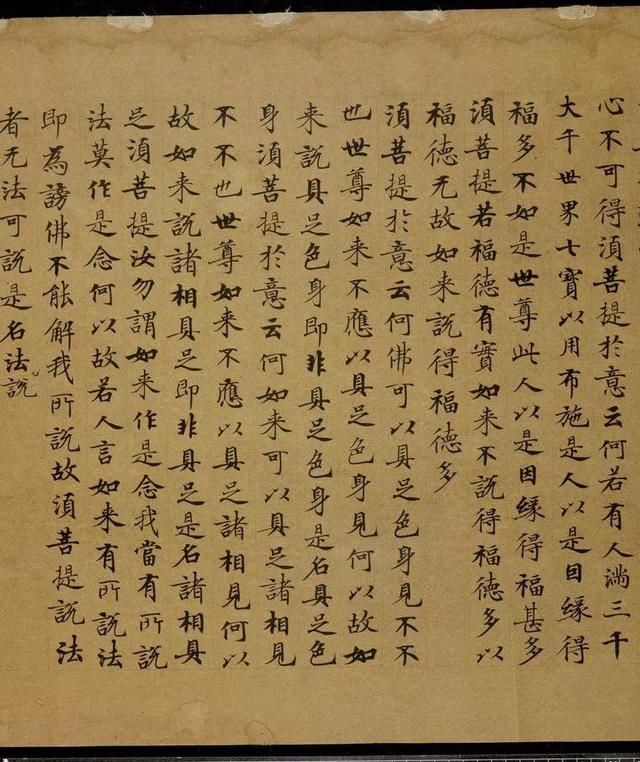 心不可得湏菩提於意云何若有人滿三千
大千世界七寶以用布施是人以是因緣得
福多不如是世尊此人以是因緣得福甚多
湏菩提若福德有實如来不說得福德多以
福德无故如来說得福德多
湏菩提於意云何佛可以具足色身見不不
也世尊如来不應以具足色身見何以故如
来說具足色身即非具足色身是名具足色
身湏菩提於意云何如来可以具足諸相見
不不也世尊如来不應以具足諸相見何以
故如来說諸相具足即非具足是名諸相具
足湏菩提汝勿謂如来作是念我當有所說
法莫作是念何以故若人言如来有所說法
即為謗佛不能解我所說故湏菩提說法
者无法可說是名法說